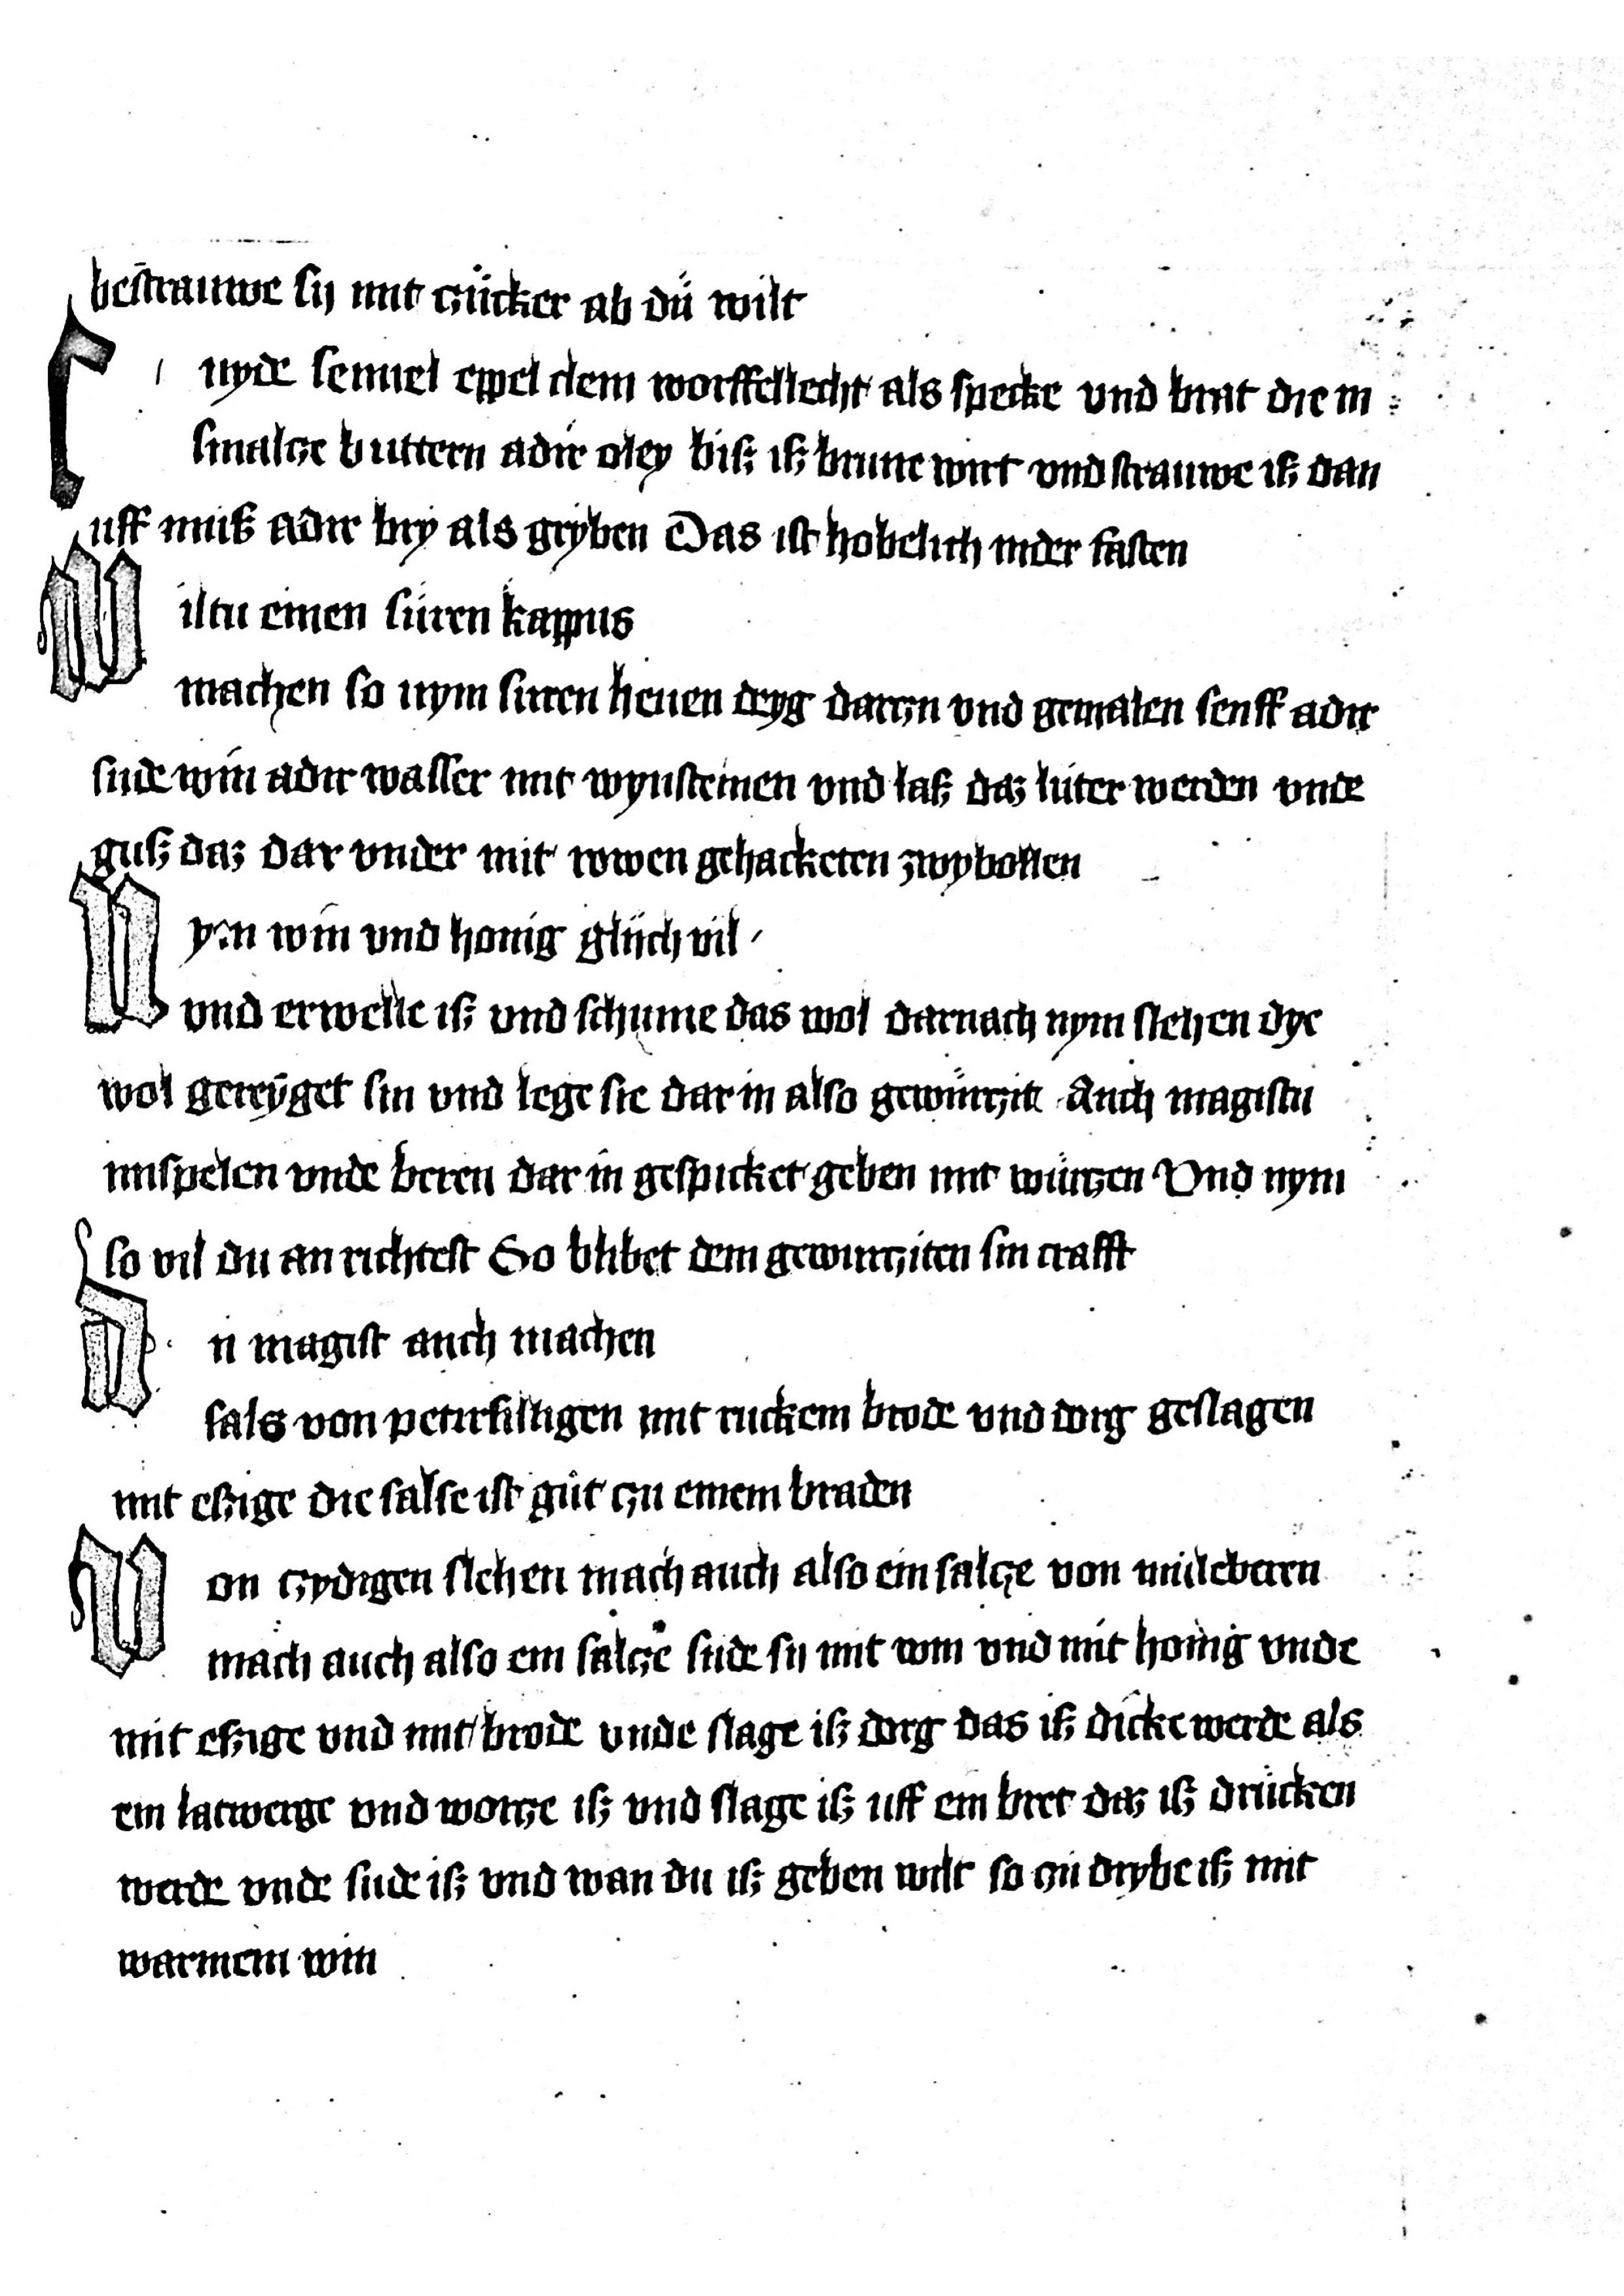 bestrauwe sij mit zücker ab dü wilt
Snyde semmel eppel clein worffellecht als specke vnd brat die in
smaltze buttern adir oley biß iß brune wirt vnd strauwe iß dan
uff müß adir bry als gryben Das ist hobelich inder fasten
Wiltu einen süren kappus
machen so nym suren heuen deyg darzu vnd gemalen senff adir
sude win adir wasser mit wynsteinen vnd laß daz luter werden vnde
guß daz dar vnder mit rowen gehacketen zwybollen
Nym win vnd honig glijch vil
vnd erwelle iß vnd schume das wol darnach nym slehen dye
wol gereyget sin vnd lege sie dar in also gewürzit Auch magistu
mispelen vnde beren dar in gespicket geben mit würtzen Vnd nym
so vil du an richtest So blibet dem gewurtziten sin crafft
Du magist auch machen
sals von petirsilligen mit ruckem brode vnd dorg geslagen
mit eßige die salse ist güt zu einem braden
Von zydigen slehen mach auch also ein saltze von müleberen
mach auch also ein saltze sude sij mit win vnd mit honig vnde
mit eßige vnd mit brode vnde slage iß dorg das iß dicke werde als
ein latwerge vnd wortze iß vnd slage iß uff ein bret daz iß drücken
werde vnde sude iß vnd wan du iß geben wilt so zü drybe iß mit
warmem win